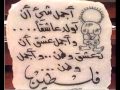 أجمل شيء أن
تولد عاشقاً...
وأجمل عشق أن
تعشق وطن... وأجمل
وطن...
فلسطين